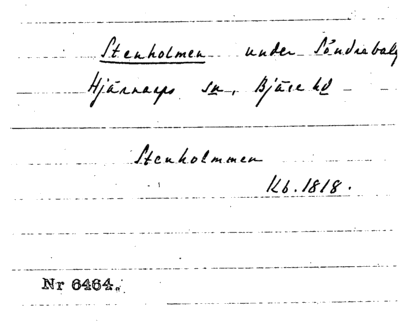 Stenholmen under Söndrebalj
Hjärnarps sn, Bjäre hd
Stenholmmen
Kb. 1818.
Nr 6464.